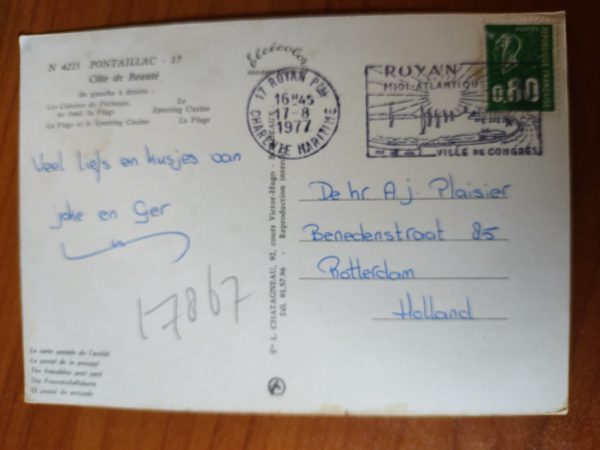 N 4215 PONTAILLAC - 17
Côte de Beauté
de gauche à droite :
Les Cabanes de Pêcheurs. Le
au fond la Plage Sporting Casino
La Plage et le Sporting Casino La Plage
Elcécolor
Veel liefs en kusjes van
joke en Ger
17867
La carte postale de l'amitié
La postal de la amistad
The friendship post card
Die Freundschaftskarte
O postal da amizade
L. CHATAGNEAU, 92, cours Victor-Hugo - BORDEAUX
Tél. 91.57.96 - Reproduction
17 ROYAN PPAL
16H45
17-8
1977
CHARENTE MARITIME
ROYAN
MIDI-ATLANTIQUE
VILLE DE CONGRÈS
0,80
REPUBLIQUE FRANCAISE
De hr A.j. Plaisier
Benedenstraat 85
Rotterdam
Holland